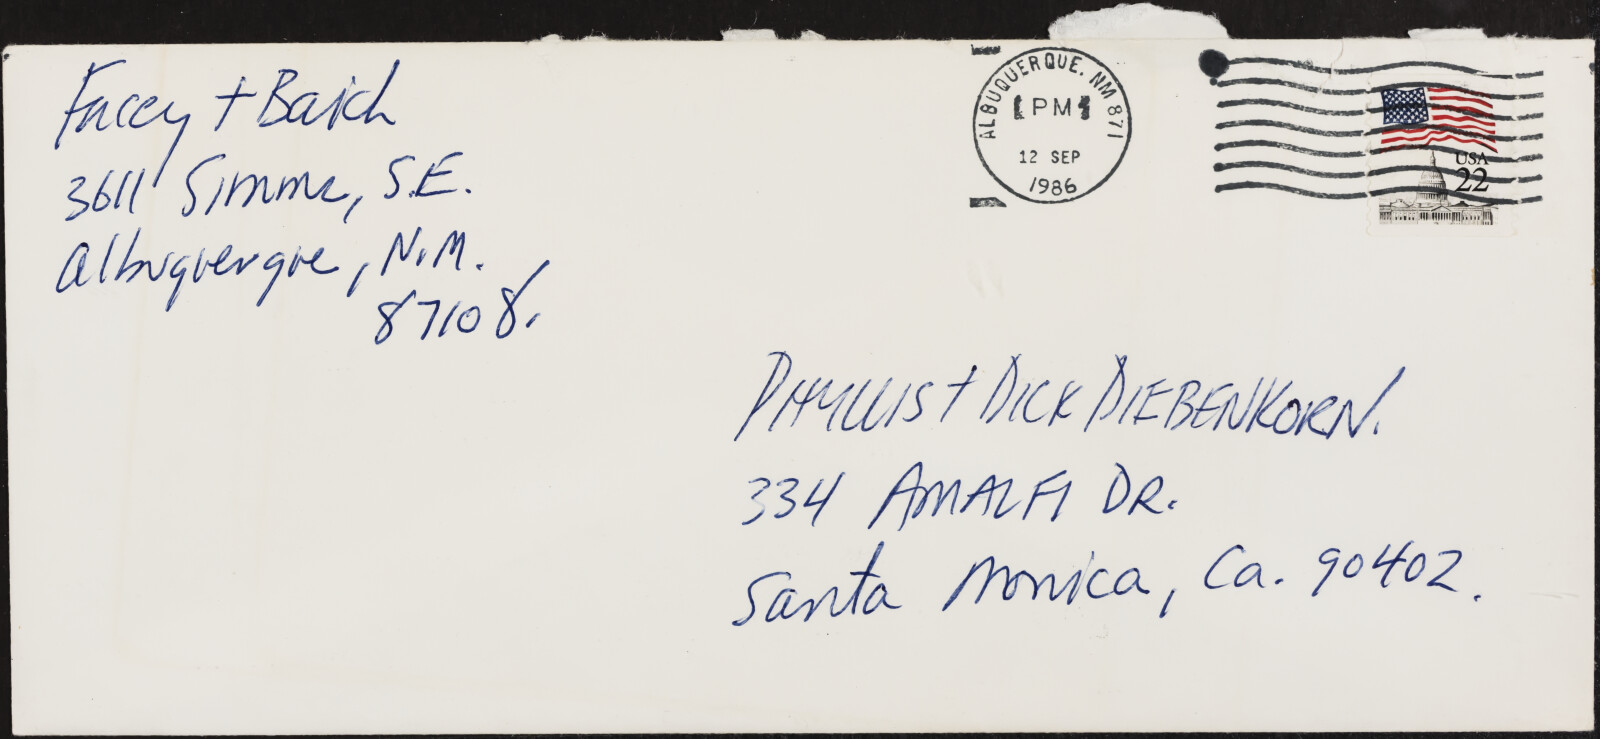 Facey + Baich
3611 Simms, S.E.
Albuquerque, N.M.
87108.
ALBUQUERQUE, NM 871
PM
12 SEP
1986
USA
22
PHYLLIS + DICK DIEBENKORN.
334 AMALFI DR.
Santa Monica, Ca. 90402.